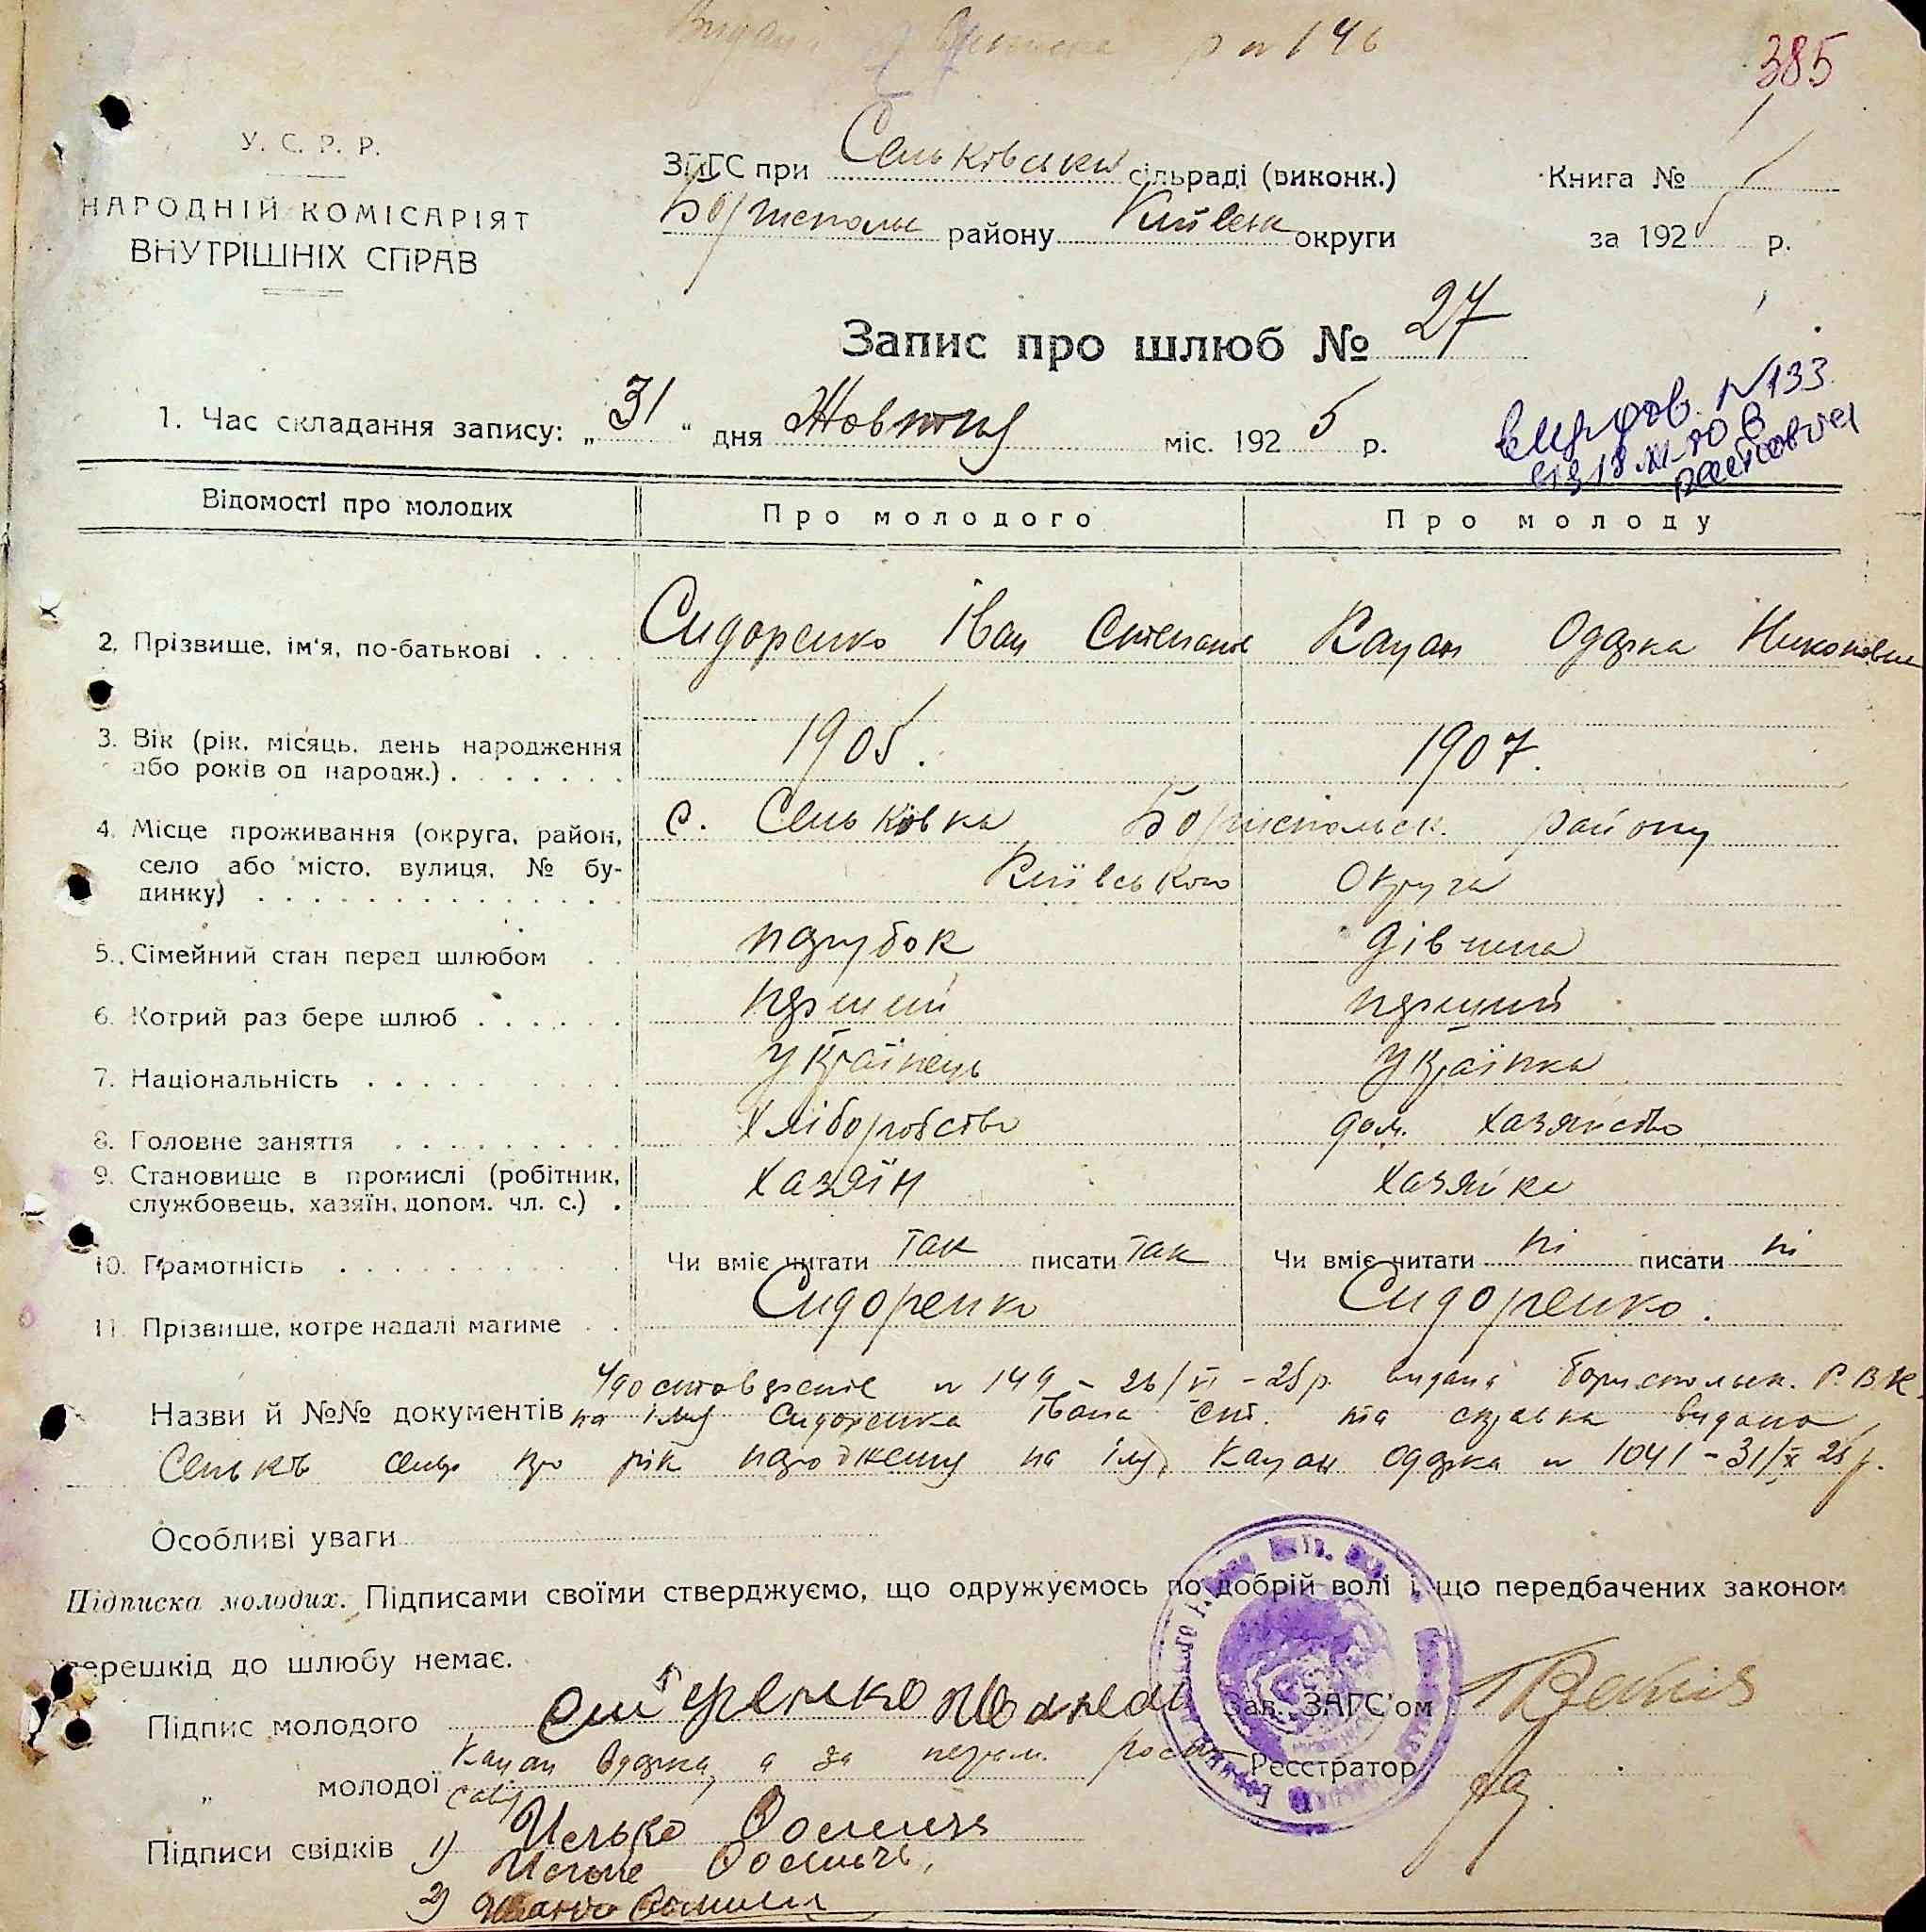 385
У. С. Р. Р.
НАРОДНІЙ КОМІСАРІЯТ
ВНУТРІШНІХ СПРАВ
ЗАГС при Сеньківськ сільраді (виконк.)
Бориспольс району Київськ округи
Книга №
за 192 р.
Запис про шлюб № 27
1. Час складання запису: „31“ дня Жовтня міс. 1925 р.
N133
Відомості про молодих
Про молодого
Про молоду
2. Прізвище, ім'я, по-батькові . . . .
Сидоренко Іван Степанов
Кацан Одарка Никоновна
3. Вік (рік, місяць, день народження
або років од нарояж.) . . . . . . .
1905.
1907.
4. Місце проживання (округа, район,
село або місто, вулиця, № бу-
динку) . . . . . . . . . . . . . .
с. Сеньковка Бориспольськ. району
Київського Округа
5. Сімейний стан перед шлюбом . .
парубок
дівчина
6. Котрий раз бере шлюб . . . . . .
перший
перший
7. Національність . . . . . . . . .
Українець
Українка
8. Головне заняття . . . . . . . .
хліборобство
дом. хазяйство
9. Становище в промислі (робітник,
службовець, хазяїн, допом. чл. с.) .
хазяїн
хазяйка
10. Грамотність . . . . . . . . . .
Чи вміє читати так писати так
Чи вміє читати ні писати ні
11. Прізвище, котре надалі матиме . .
Сидоренко
Сидоренко.
Удостоверение № 149 - 26/VI - 25 р. видана Бориспольськ. Р.В.К.
Назви й №№ документів на імя Сидоренка Івана Ст. та справка видана
Сеньків про рік народження на імя Кацан Одарка № 1041 - 31/X 25 р.
Особливі уваги
Підписка молодих. Підписами своїми стверджуємо, що одружуємось по добрій волі і що передбачених законом
перешкід до шлюбу немає.
Підпис молодого
Зав. ЗАГС'ом
Кацан Одарка, а за неграм.
„ молодої
Реєстратор
Підписи свідків 1)
2)